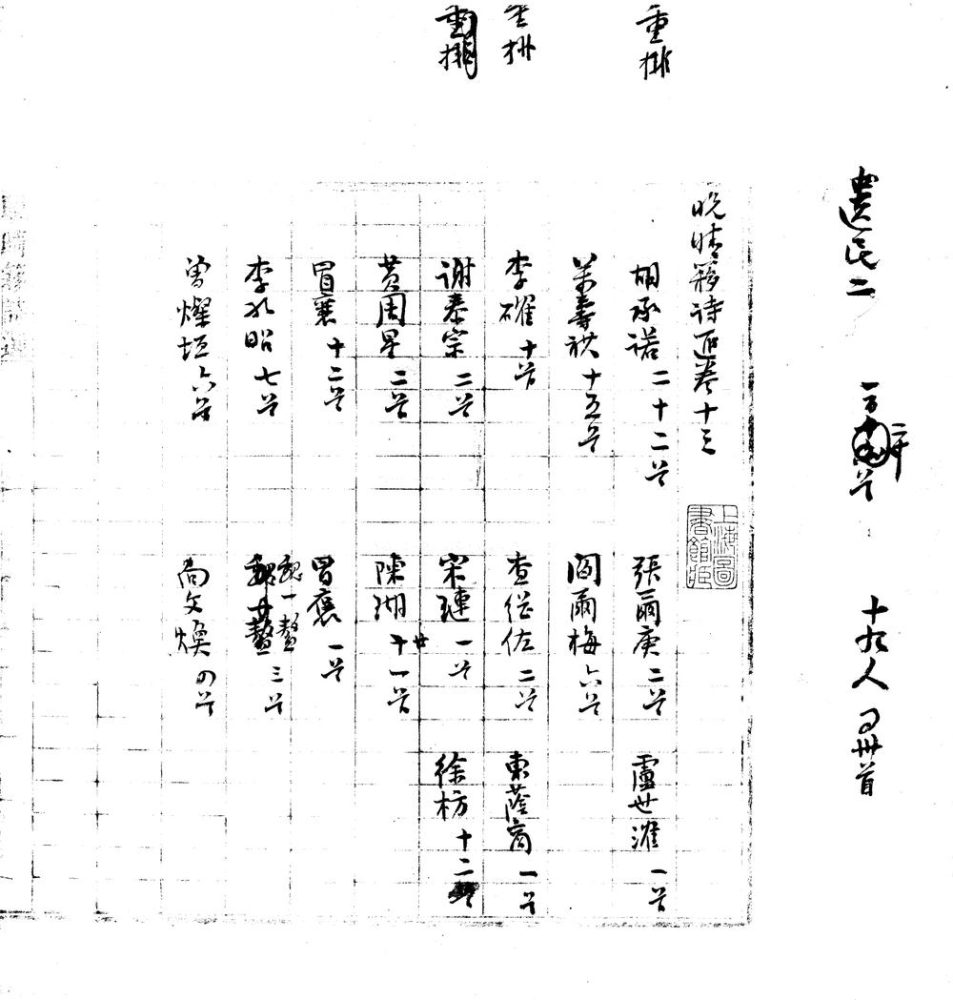 重排
重排
重排
遺民二
十九人
冊首
晚晴簃詩匯卷十三
胡承諾 二十二首
張爾庚 二首
盧世㴶 一首
萬壽祺 十五首
閻爾梅 六首
李確 十首
查繼佐 二首
東蔭商 一首
謝泰宗 二首
宋璉 一首
徐枋 十二
黃周星 二首
陳瑚 十一首
冒襄 十二首
冒褒 一首
李孔昭 七首
魏一鼇 三首
曾燦垣 六首
向文煥 四首
上海圖書館藏